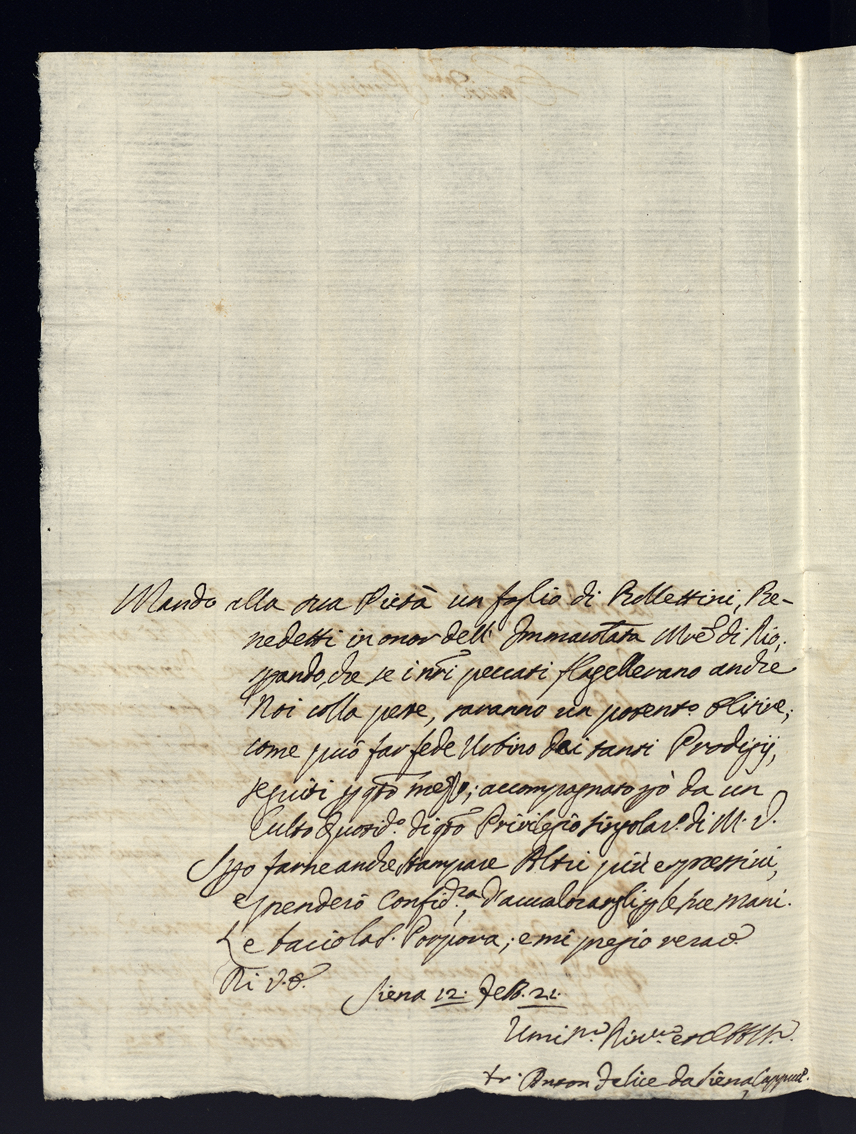 Mando alla sua Pietà un foglio di Bollettini, Be-
nedetti in onor dell' Immacolata Mre di Dio,
sperando, che se i nrī peccati flagellerano anche
Noi colla peste, saranno un potente elisire;
come può far fede Urbino dei tanti Prodigij,
seguiti p qto mezzo; accompagnato però da un
Culto Quotid.º di qto Privilegio singolar.e di M. V.
Spo farne anche stampare Altri più espressivi,
e prenderò Confid.za d'avvalorargli p le sue mani.
Le bacio la S. Porpora; e mi pregio verace
Di V. E.
Siena 12. Feb. 21.
Umi.mo
Fr. Anton Felice da Siena Cappucc.